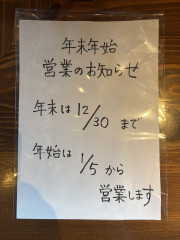 年末年始
営業のお知らせ
年末は12/30まで
年始は1/5から
営業します